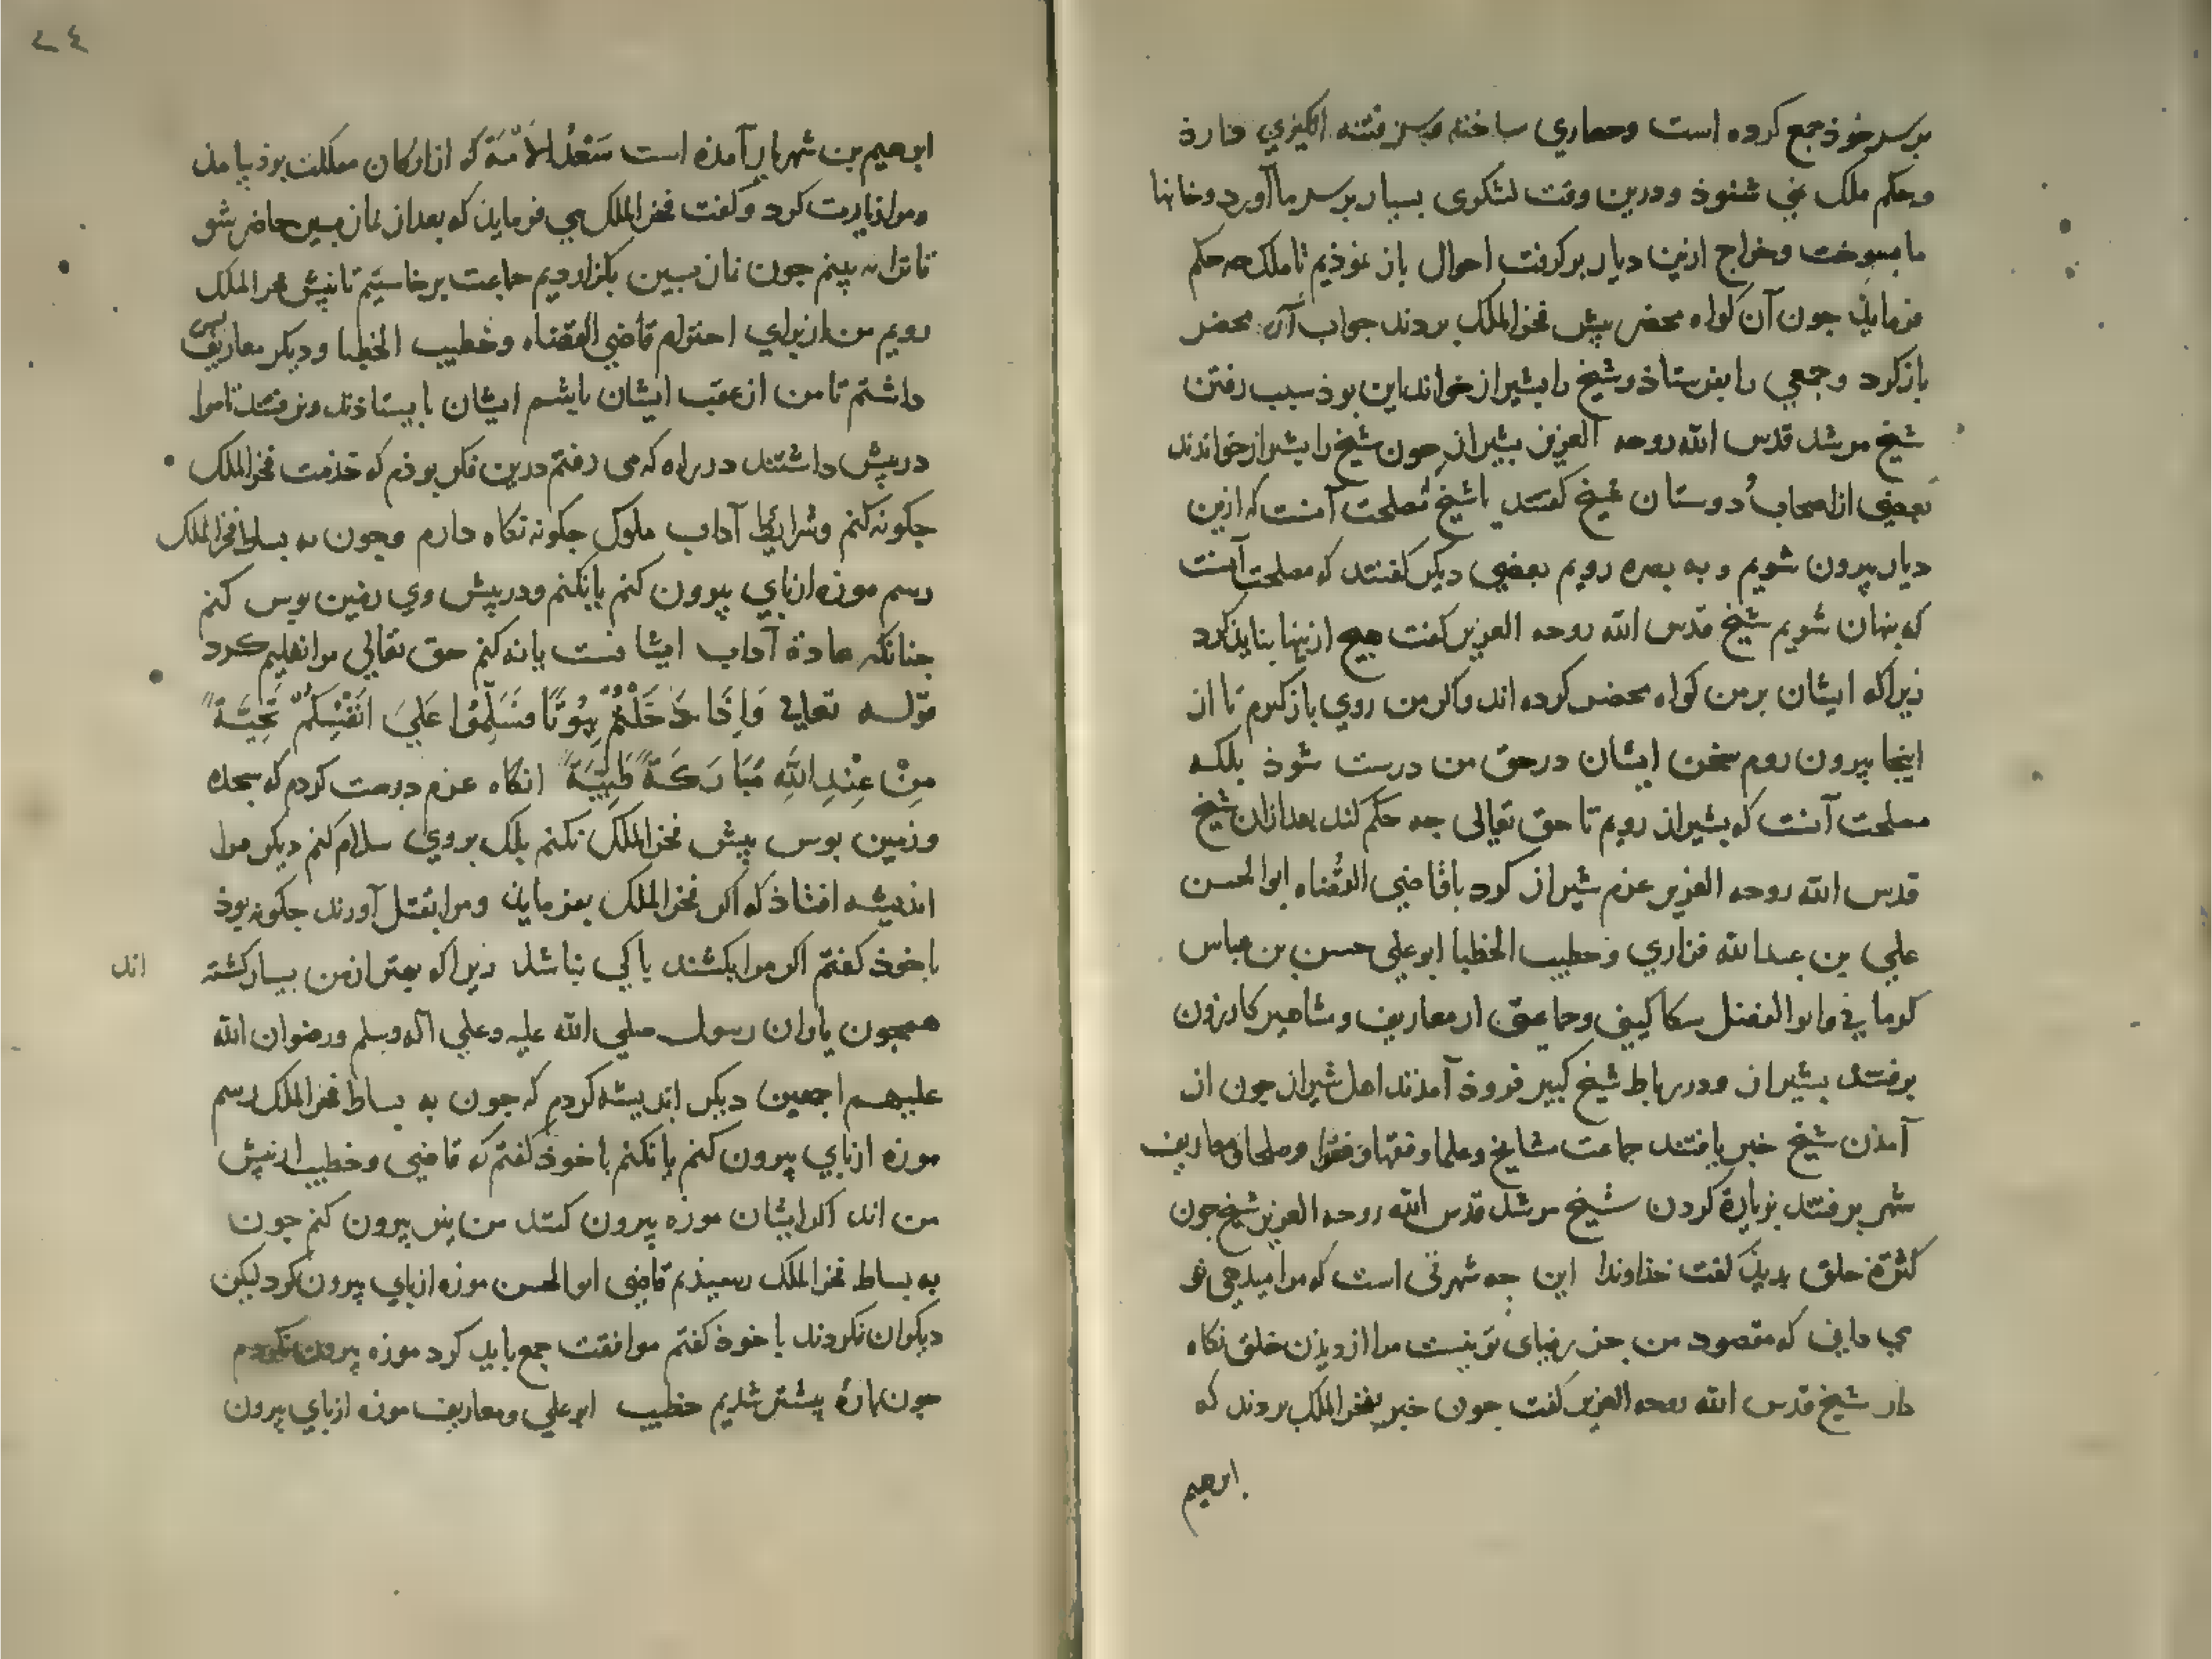 بر سر خوذ جمع کرده است وحصاری ساخته وسر فتنه انکیزی دارذ
وحکم ملک نمی شنوذ ودرین وقت لشکری بسیار بر سر ما آورد وخانها
ما بسوخت وخراج ازین دیار برکرفت احوال باز نموذیم تا ملک جه حکم
فرمایذ جون آن کواه محضر پیش فخر الملک بردند جواب آن محضر
بازکرد وجمعی را بفرستاذ وشیخ را بشیراز خواند این بوذ سبب رفتن
شیخ مرشد قدس الله روحه العزیز بشیراز جون شیخ را بشیراز خواندند
بعضی از اصحاب ودوستان شیخ کفتند یا شیخ مصلحت آنست که ازین
دیار بیرون شویم وبه بصره رویم بعضی دیکر کفتند که مصلحت آنست
که بنهان شویم شیخ قدس الله روحه العزیز کفت هیج ازینها نبایذ کرد
زیرا که ایشان بر من کواه محضر کرده اند واکر من روی باز کیرم تا از
اینجا بیرون روم سخن ایشان در حق من درست شوذ بلکه
مصلحت آنست که بشیراز رویم تا حق تعالی جه حکم کند بعد ازان شیخ
قدس الله روحه العزیز عزم شیراز کرد با قاضی القضاه ابو الحسن
علی بن عبد الله فزاری وخطیب الخطبا ابو علی حسن بن عباس
کرمانی وابو الفضل سکاکینی وجماعتی از معاریف ومشاهیر کازرون
برفتند بشیراز ودر رباط شیخ کبیر فروذ آمذند اهل شیراز جون از
آمذن شیخ خبر یافتند جماعت مشایخ وعلما وفقها وفقرا وصلحا ومعاریف
شهر برفتند بزیارة کردن شیخ مرشد قدس الله روحه العزیز شیخ جون
کثرة خلق بدیذ کفت خذاوندا این جه شهرتی است که مرا میدهی تو
می دانی که مقصود من جز رضای تو نیست مرا از دیذن خلق نکاه
دار شیخ قدس الله روحه العزیز کفت جون خبر بفخر الملک بردند که
ابرهیم
ابرهیم بن شهریار آمذه است سَعْدُ الاُمّة که از ارکان مملکت بوذ بیامذ
ومرا زیارت کرد وکفت فخر الملک می فرمایذ که بعد از نماز پسین حاضر شو
تا ترا به بینم جون نماز پسین بکزاردیم جماعت برخاستیم تا پیش فخر الملک
رویم من از برای احترام قاضی القضاه وخطیب الخطبا ودیکر معاریف پس
داشتم تا من از عقب ایشان باشم ایشان بایستاذند ونرفتند تا مرا
در پیش داشتند در راه که می رفتم درین فکر بوذم که خذمت فخر الملک
جکونه کنم وشرایط آداب ملوک جکونه نکاه دارم وجون به بساط فخر الملک
رسم موزه از پای بیرون کنم یا نکنم ودر پیش وی زمین بوس کنم
جنانکه عادة آداب ایشانست یا نه کنم حق تعالی مرا تعلیم کرد
قوله تعالی وَاِذَا دَخَلْتُمْ بُیُوتًا فَسَلِّمُوا عَلَیَ انَفُسِکُمْ تَحِیَّةً
مِنْ عِنْدِ اللهِ مُبَارَکَةً طَیِّبَةً انکاه عزم درست کردم که سجده
وزمین بوس پیش فخر الملک نکنم بلک بر وی سلام کنم دیکر مرا
اندیشه افتاذ که اکر فخر الملک بفرمایذ ومرا بقتل آورند جکونه بوذ
با خوذ کفتم اکر مرا بکشند باکی نباشد زیرا که بهتر از من بسیار کشته اند
همجون یاران رسول صلی الله علیه وعلی آله وسلم ورضوان الله
علیهم اجمعین دیکر اندیشه کردم که جون به بساط فخر الملک رسم
موزه از پای بیرون کنم یا نکنم با خوذ کفتم که قاضی وخطیب از پیش
من اند اکر ایشان موزه بیرون کنند من نیز بیرون کنم جون
به بساط فخر الملک رسیذیم قاضی ابو الحسن موزه از پای بیرون کرد لیکن
دیکران نکردند با خوذ کفتم موافقت جمع باید کرد موزه بیرون نکردم
جون پارهٔ پیشتر شدیم خطیب ابو علی ومعاریف موزه از پای بیرون